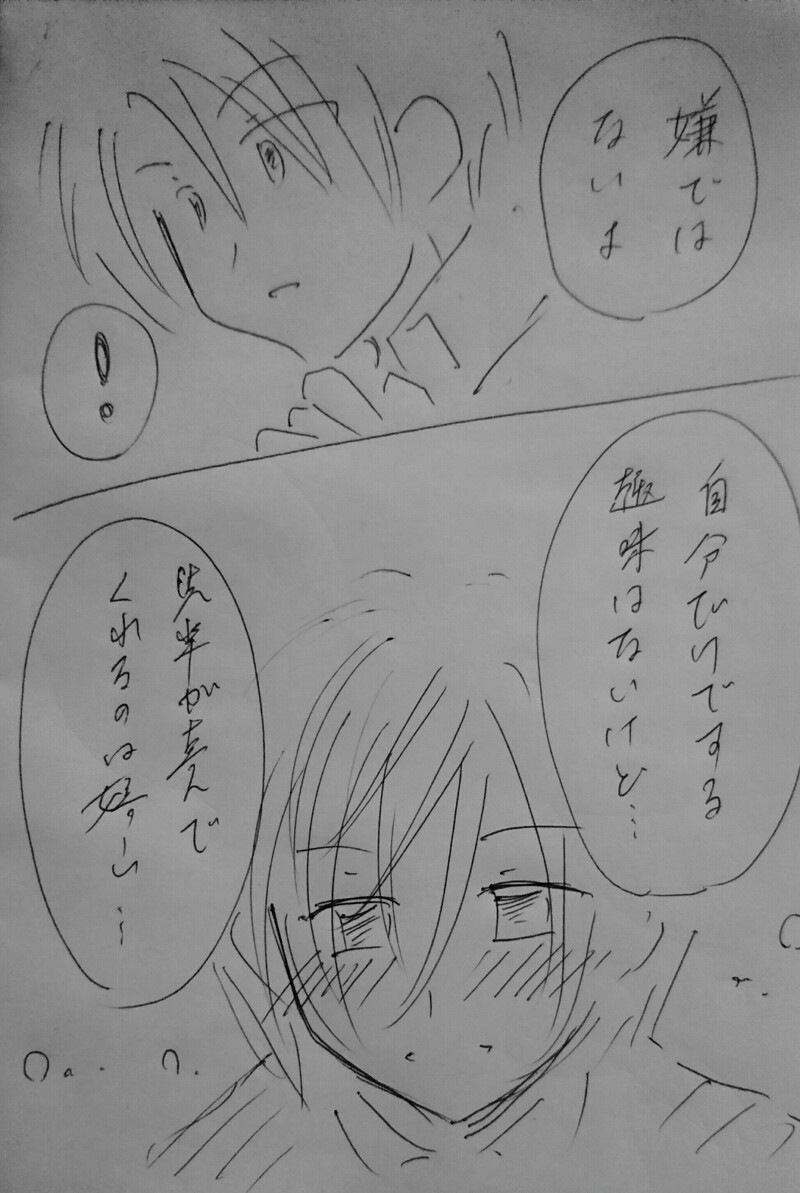 嫌では
ないよ
!
自分だけでする
趣味はないけど…
先輩が喜んで
くれるのは嬉しい…